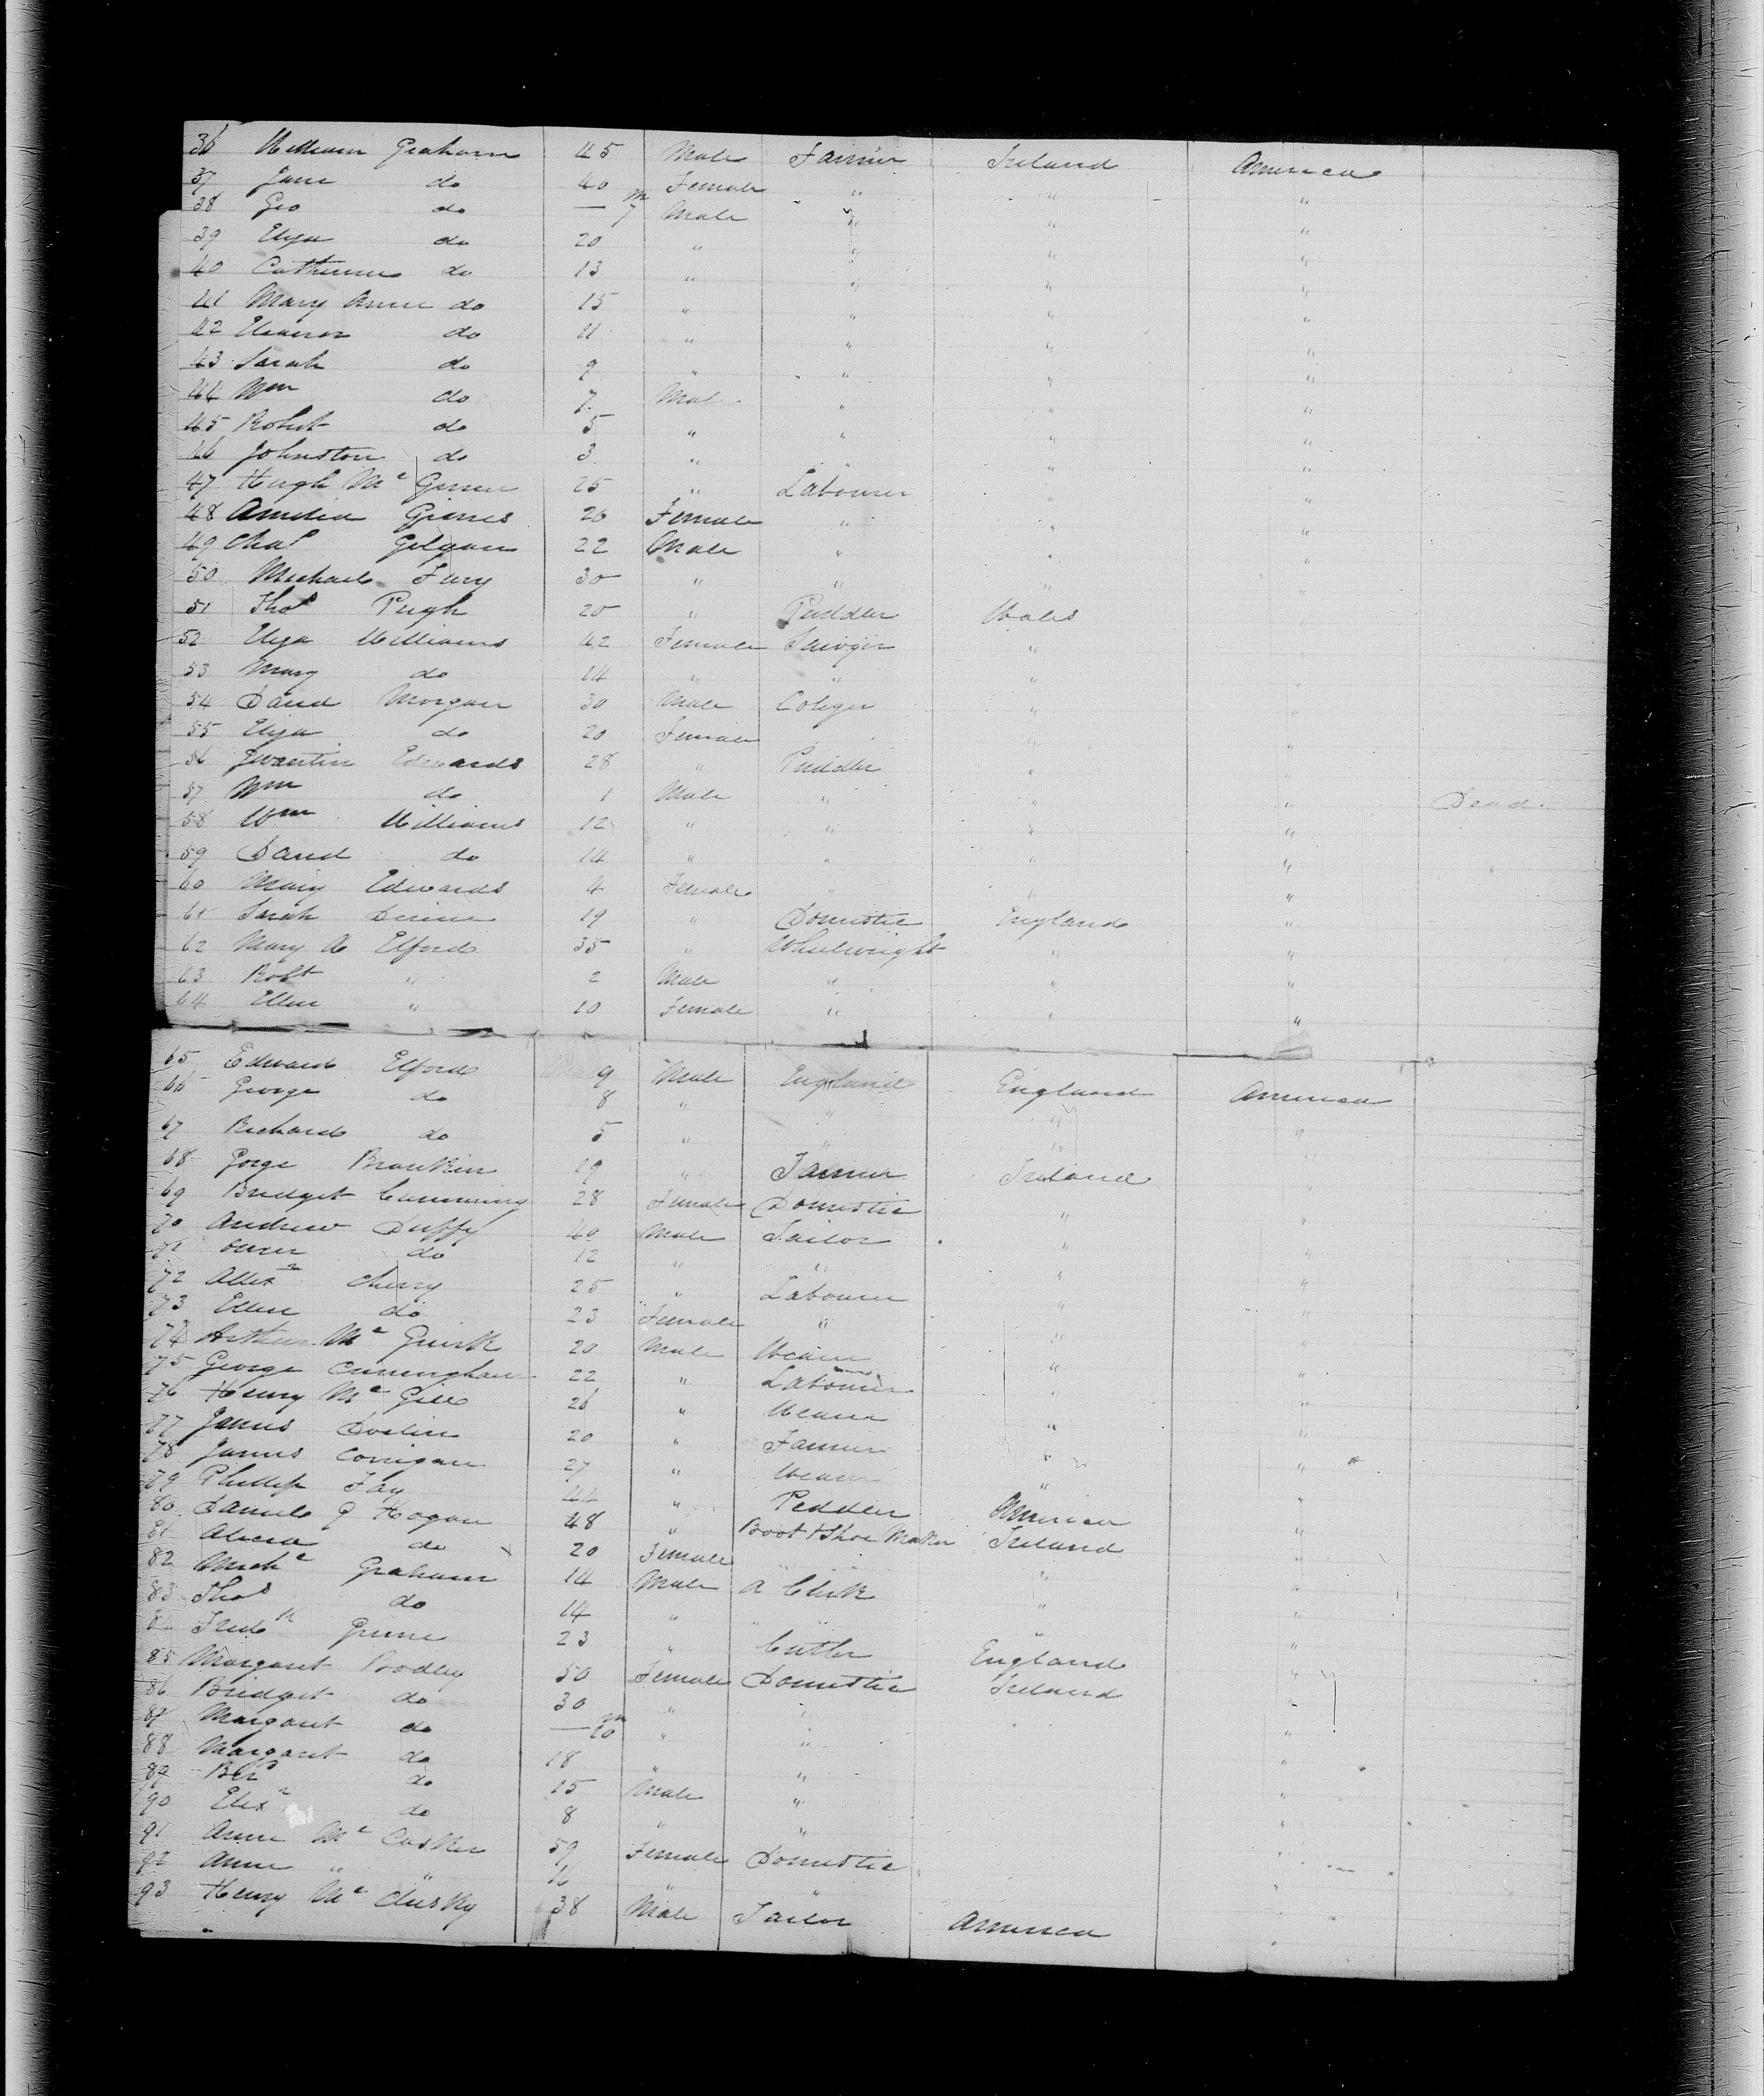 36 William Graham 45 Male Farmer Ireland America
37 Jane do 40 Female " " "
38 Geo do — 7 m Male " " "
39 Eliza do 20 " " " "
40 Catherine do 13 " " " "
41 Mary Anne do 15 " " " "
42 Eleanor do 11 " " " "
43 Sarah do 9 " " " "
44 Wm do 7 Mal " " "
45 Robert do 5 " " " "
46 Johnston do 3 " " " "
47 Hugh Mc 25 " Labourer " "
48 Amelia 26 Female " " "
49 Chas 22 Male " " "
50 Michael Fury 30 " " " "
51 Thos Pugh 20 " Puddler Wales "
52 Eliza Williams 42 Female Sawyer " "
53 Mary do 14 " " " "
54 David Morgan 30 Male Colyer " "
55 Eliza do 20 Female " "
56 Edwards 28 " Puddler " "
57 Wm do 1 Male " " " Dead.
58 Wm Williams 12 " " " "
59 David do 14 " " " "
60 Mary Edwards 4 Female " " "
61 Sarah 19 " Domestic England "
62 Mary A Elford 35 " Wheelwright " "
63 Robt " 2 Male " " "
64 Ellen " 10 Female " " "
65 Edward Elford 9 Male England England America
66 George do 8 " " " "
67 Richard do 5 " " " "
68 Gorge 19 " Farmer Ireland "
69 Bridget Cumming 28 Female Domestic " "
70 Andrew Duffy 40 Male Tailor " "
71 Owen do 12 " " " "
72 Allexr Cherry 25 " Labourer " "
73 Ellen do 23 Female " " "
74 Arthur Mc Guirk 20 Male Weaver " "
75 George Cuningham 22 " Labourer " "
76 Henry Mc Gill 26 " Weaver " "
77 James Devlin 20 " Farmer " "
78 James Corrigan 27 " Weaver " "
79 Phillip Fay 44 " Peddler America "
80 Daniel G Hogan 48 " Boot & Shoe Maker Ireland "
81 Alicia do 20 Female " " "
82 Michl Graham 14 Male A Clerk " "
83 Thos do 14 " " " "
84 Fredk Greene 23 " Cutler England "
85 Margaret Bodley 50 Female Domestic Ireland "
86 Bridget do 30 " " "
87 Margaret do — 10 m " " "
88 Margaret do 18 " " "
89 do 15 Male " "
90 Elexr do 8 " " "
91 Anne Mc Casker 59 Female Domestic "
92 Anne " " " " "
93 Henry Mc Clusky 38 Male Tailor America "